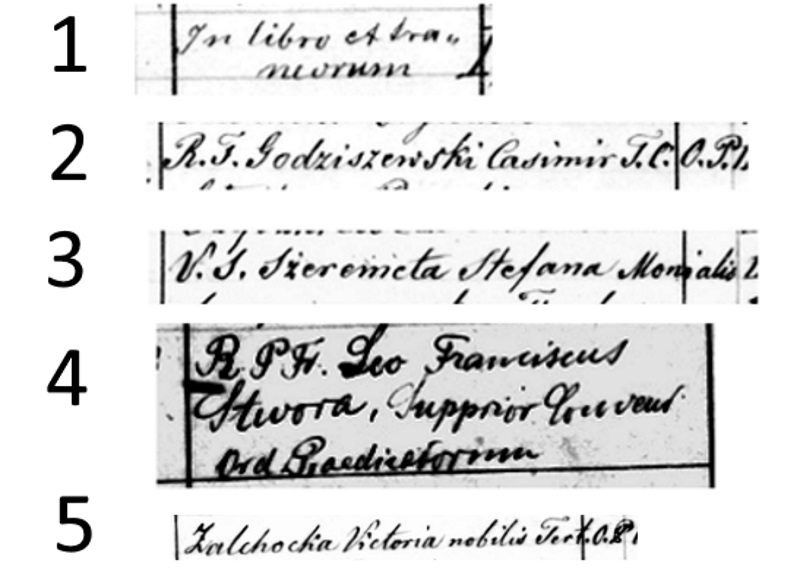 1
In libro extra„
neorum
2
R. F. Godziszewski Casimir T. C. O. P.
3
V. S. Szeremeta Stefana Monialis
4
R P Fr. Leo Franciscus
Stwora, Supprior Convent
Ord Praedicatorum
5
Zalchocka Victoria nobilis Tert. O. P.